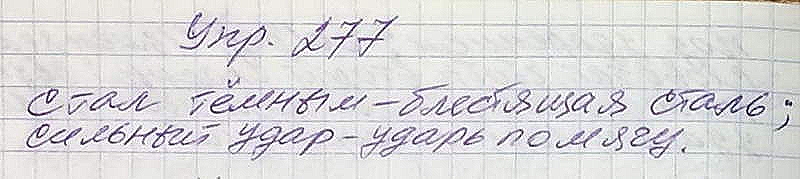 Упр. 277
стал тёмным - блестящая сталь;
сильный удар - ударь по мячу.